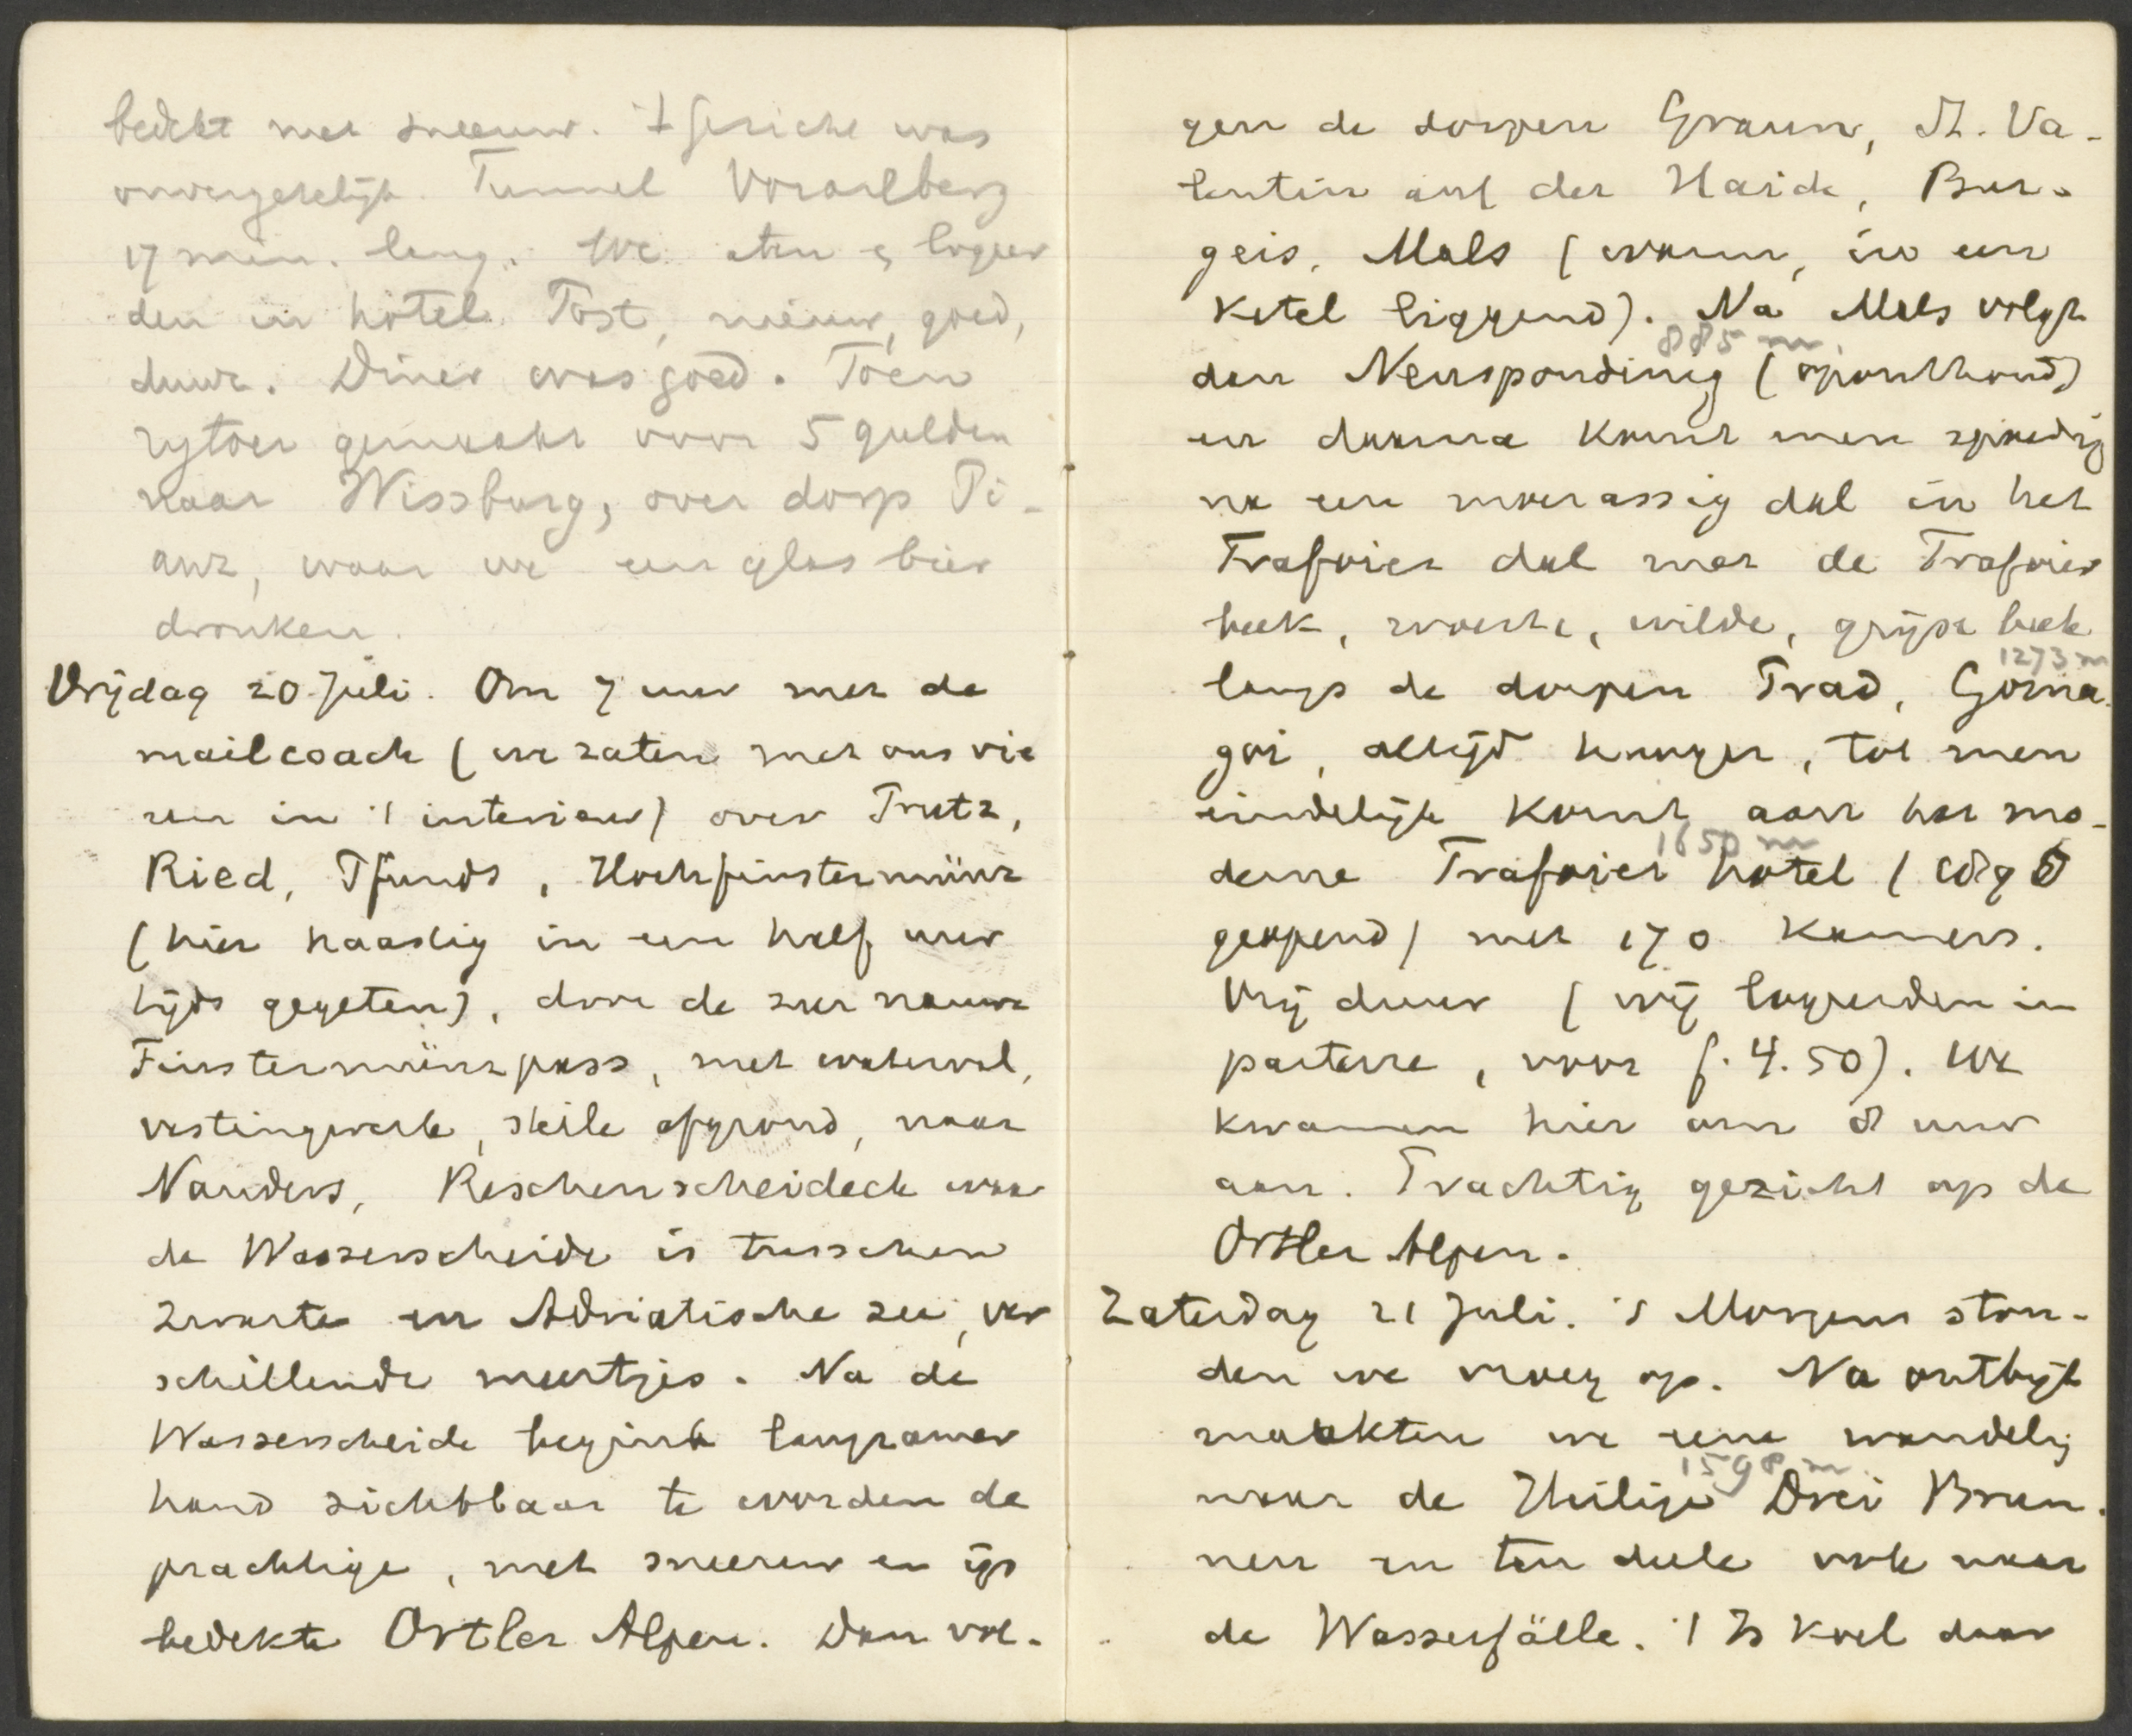 bedekt met sneeuw. 't Gezicht was
onvergetelijk. Tunnel Vorarlberg
17 min. lang. We aten & logeer
den in hôtel Post, nieuw, goed,
duur. Diner was goed. Toen
rytoer gemaakt voor 5 gulden
naar Wissburg, over dorp Pi-
anz, waar we een glas bier
dronken.
Vrijdag 20 Juli. Om 7 uur met de
mailcoach (we zaten met ons vie
ren in 't interieur) over Prutz,
Ried, Pfunds, Hochfinstermünz
(hier haastig in een half uur
tijds gegeten), door de zeer nauwe
Finstermünzpass, met waterval,
vestingwerk, steile afgrond, naar
Nauders, Reschenscheideck waar
de Wasserscheide is tusschen
Zwarte en Adriatische zee, ver
schillende meertjes. Na de
Wasserscheide begint langzamer
hand zichtbaar te worden de
prachtige, met sneeuw en ijs
bedekte Ortler Alpen. Dan vol-
gen de dorpen Graun, St. Va-
lentin auf der Haide, Bur-
geis, Mals (warm, in een
ketel liggend). Na Mals volgt
885 m.
dan Neuspondinig (oponthoud)
en daarna komt men spoedig
na een moerassig dal in het
Trafoier dal met de Trafoier
beek, woeste, wilde, grijze beek
1273 m
langs de dorpen Prad, Goma-
goi, altijd hooger, tot men
eindelijk komt aan het mo-
1650 m
derne Trafoier hotel (
geopend) met 170 kamers.
Vrij duur (wij logeerden in
parterre, voor f. 4.50). We
kwamen hier om 8 uur
aan. Prachtig gezicht op de
Ortler Alpen.
Zaterdag 21 Juli. 's Morgens ston-
den we vroeg op. Na ontbijt
maakten we eene wandelg
1598 m
naar de Heilige Drei Brun-
nen en ten deele ook naar
de Wasserfälle. 't Is koel daar